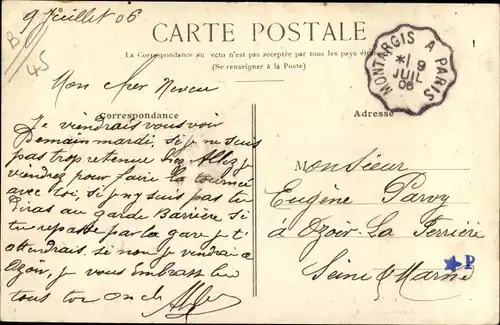 9 Juillet 06
B/45
CARTE POSTALE
La Correspondance au recto n'est pas acceptée par tous les pays étran
(Se renseigner à la Poste)
MONTARGIS A PARIS
*1 9
JUIL
06
Mon cher Neveu
Correspondance
Adresse
Je viendrais vous voir
Demain mardi, si je ne suis
pas trop retenue chez Allez je
viendrez pour faire la tournée
avec toi, si j'y suis pas tu
Diras au garde Barrière si
tu repasse par la gare je t'
attendrais si non je viendrai a
Ozoir, je vous Embrasse bien
tous ton oncle
Monsieur
Eugène Parvy
à Ozoir-La-Ferrière
Seine & Marne
P